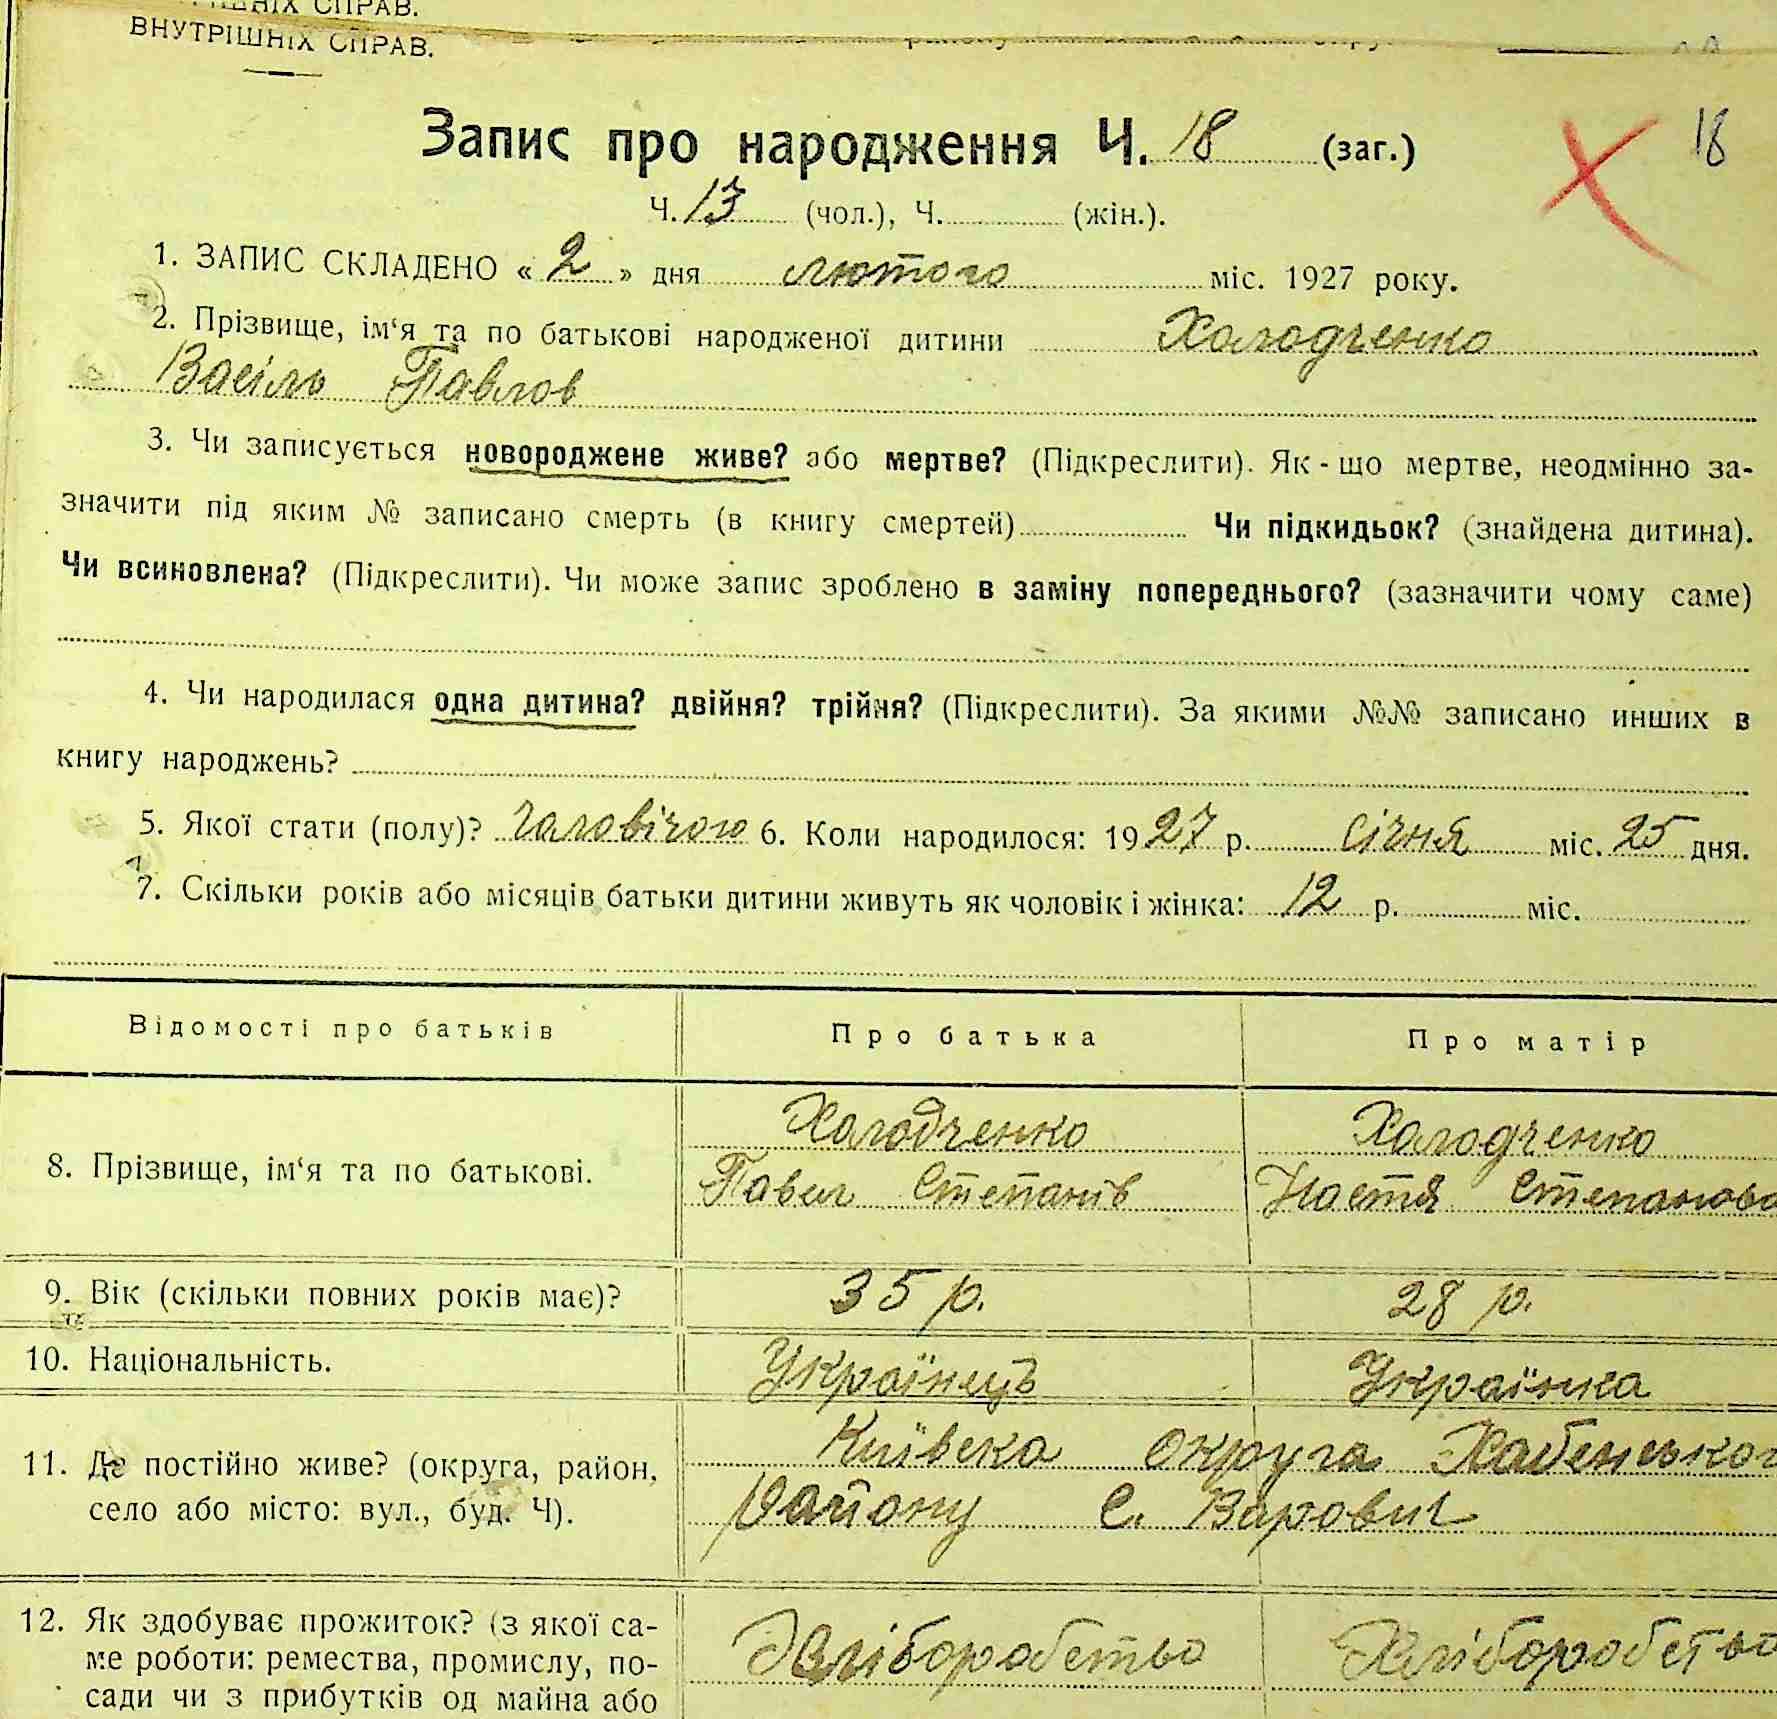 ВНУТРІШНІХ СПРАВ.
Запис про народження Ч. 18 (заг.)
18
Ч. 13 (чол.), Ч. (жін.).
1. ЗАПИС СКЛАДЕНО « 2 » дня лютого міс. 1927 року.
2. Прізвище, ім‘я та по батькові народженої дитини Холодченко
Васіль Павлов
3. Чи записується новороджене живе? або мертве? (Підкреслити). Як-що мертве, неодмінно за-
значити під яким № записано смерть (в книгу смертей) Чи підкидьок? (знайдена дитина).
Чи всиновлена? (Підкреслити). Чи може запис зроблено в заміну попереднього? (зазначити чому саме)
4. Чи народилася одна дитина? двійня? трійня? (Підкреслити). За якими №№ записано инших в
книгу народжень?
5. Якої стати (полу)? чоловічого 6. Коли народилося: 1927 р. Січня міс. 25 дня.
7. Скільки років або місяців батьки дитини живуть як чоловік і жінка: 12 р. міс.
Відомості про батьків Про батька Про матір
Холодченко Холодченко
8. Прізвище, ім‘я та по батькові. Павел Степанів Настя Степанова
9. Вік (скільки повних років має)? 35 р. 28 р.
10. Національність. Українець Українка
11. Де постійно живе? (округа, район, Київска округа Хабенського
село або місто: вул., буд. Ч). Району С. Варовичі
12. Як здобуває прожиток? (з якої са- Хліборобство Хліборобство
ме роботи: ремества, промислу, по-
сади чи з прибутків од майна або